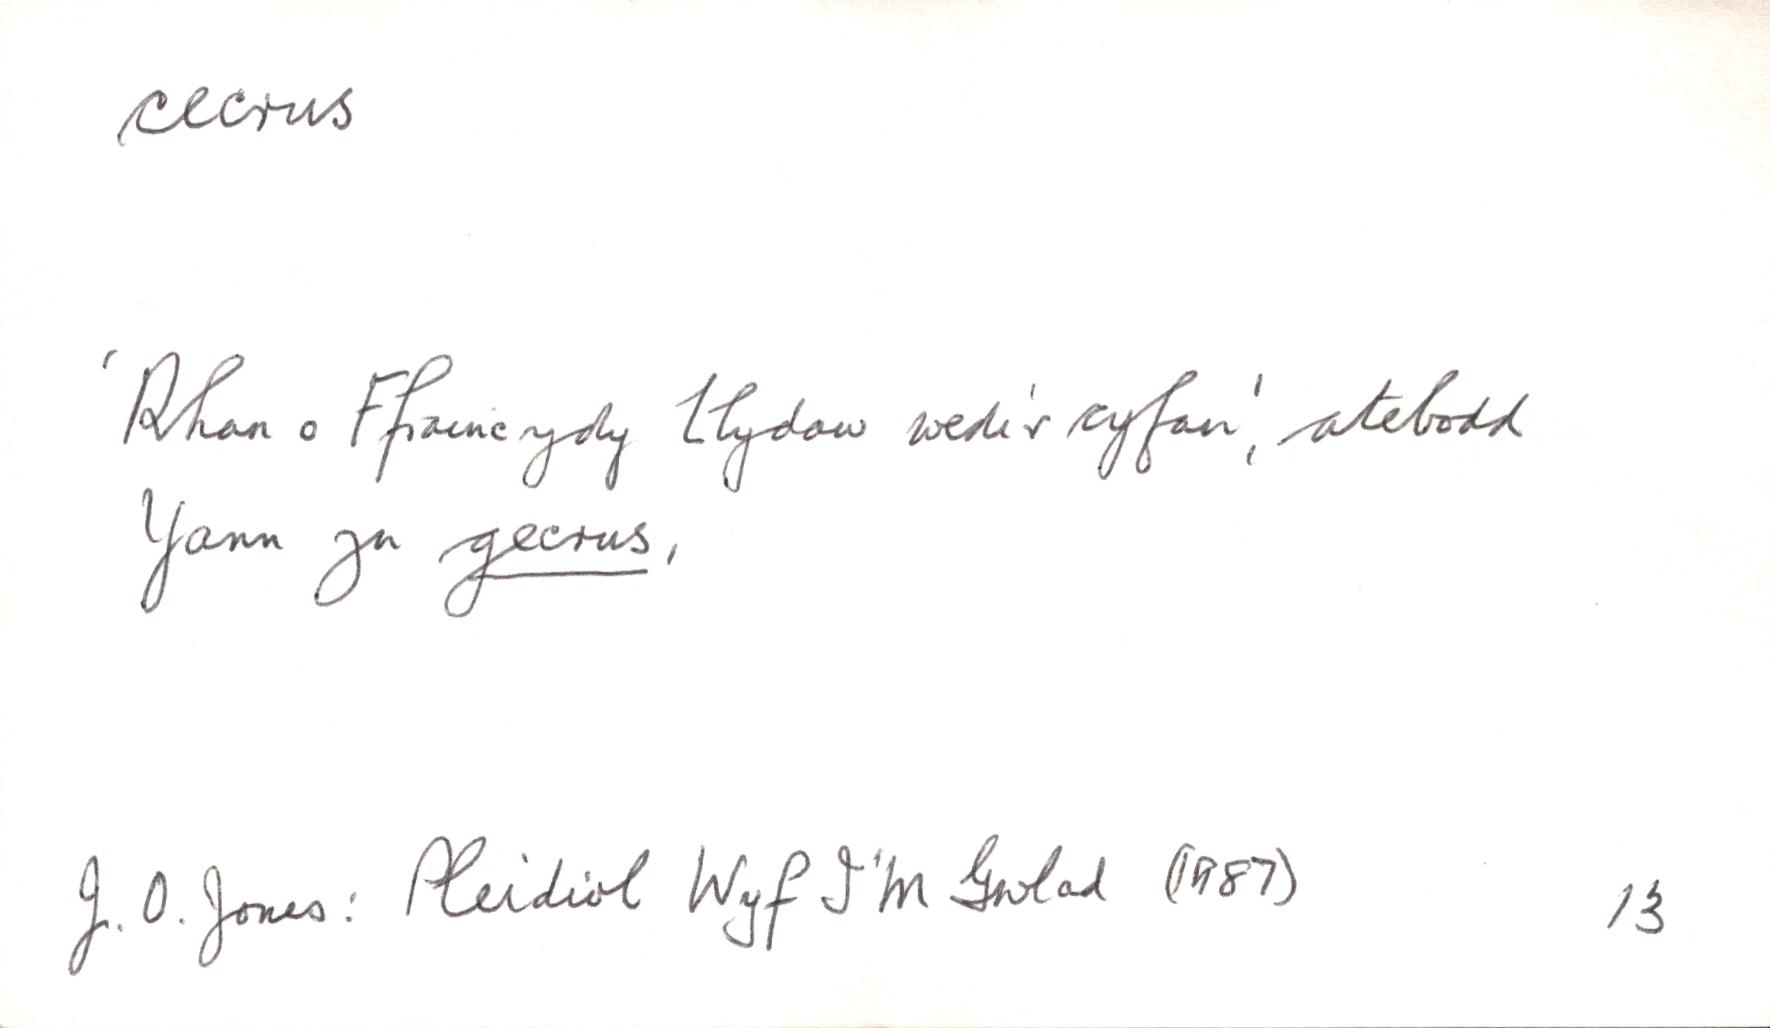 cecrus
'Rhan o Ffrainc ydy Llydaw wedi'r cyfan', atebodd
Yann yn gecrus,
J. O. Jones: Pleidiol Wyf I'm Gwlad (1987) 13